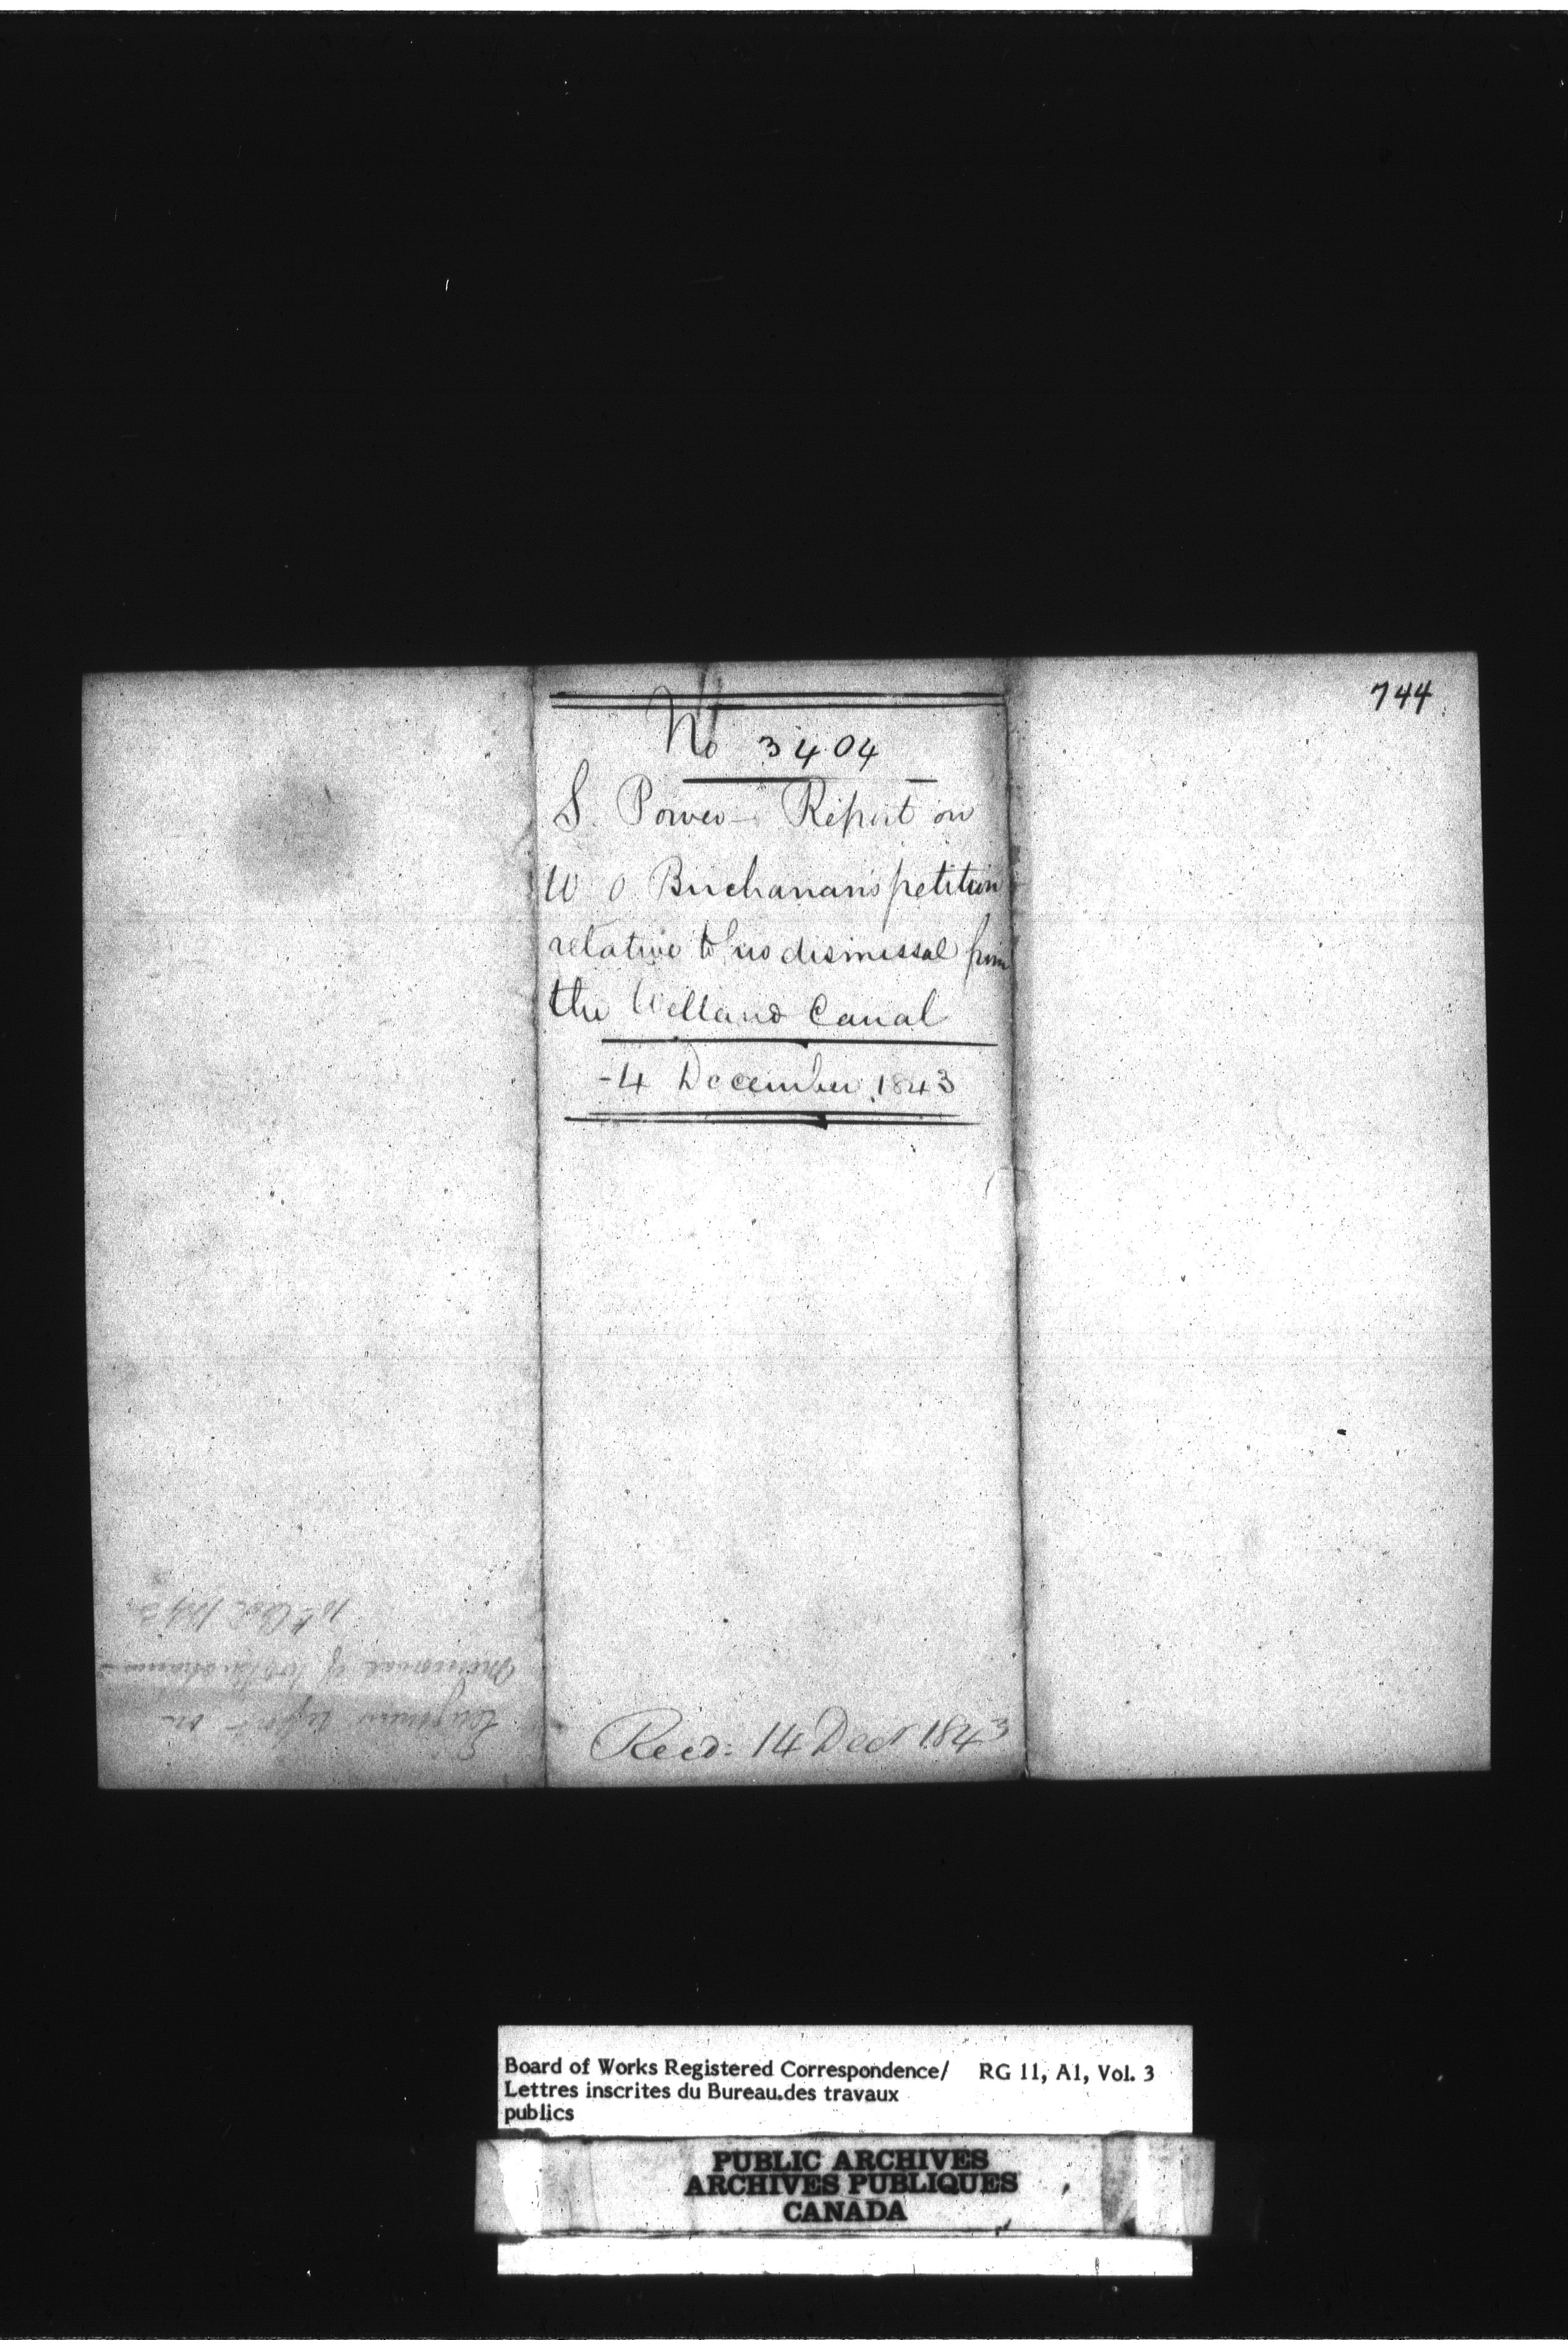 744
No 3404
S. Power - Report on
W O Buchanan's petition
relative to his dismissal from
the Welland Canal
-4 December 1843
Recd: 14 Decr 1843
Engineers report on
Memorial of W O Buchanan
Board of Works Registered Correspondence/ RG 11, A1, Vol. 3
Lettres inscrites du Bureau des travaux
publics
PUBLIC ARCHIVES
ARCHIVES PUBLIQUES
CANADA